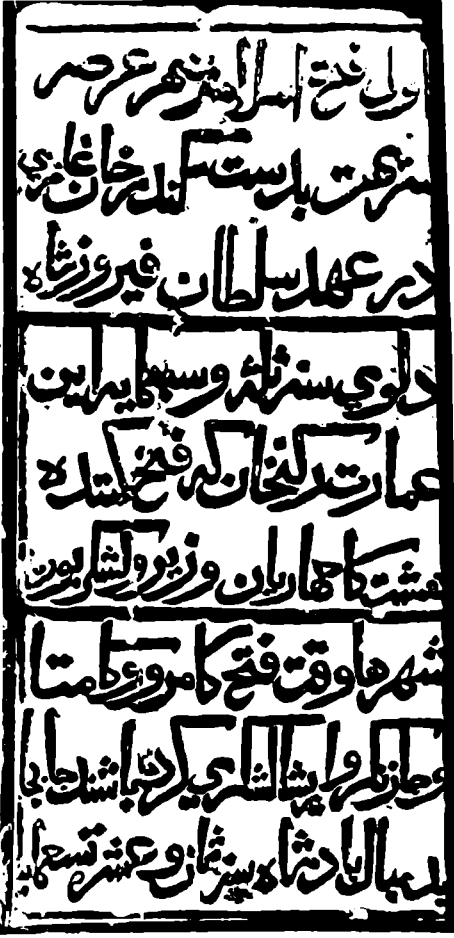 اول فتح اسلام شهر عرصه
سریهت بدست سکندر خان غازی
در عهد سلطان فیروز شاه
دلوی سنه ثلث و سبعمایه این
عمارت رکنخان که فتح کننده
هشت کامهاریان وزیر و لشکر بوده
شهرها وقت فتح کامرو و کامتا
و جازنگر و اریشا لشکری کرده باشند جابجا
بدنبال بادشاه سنه ثمان و عشر تسعمایه